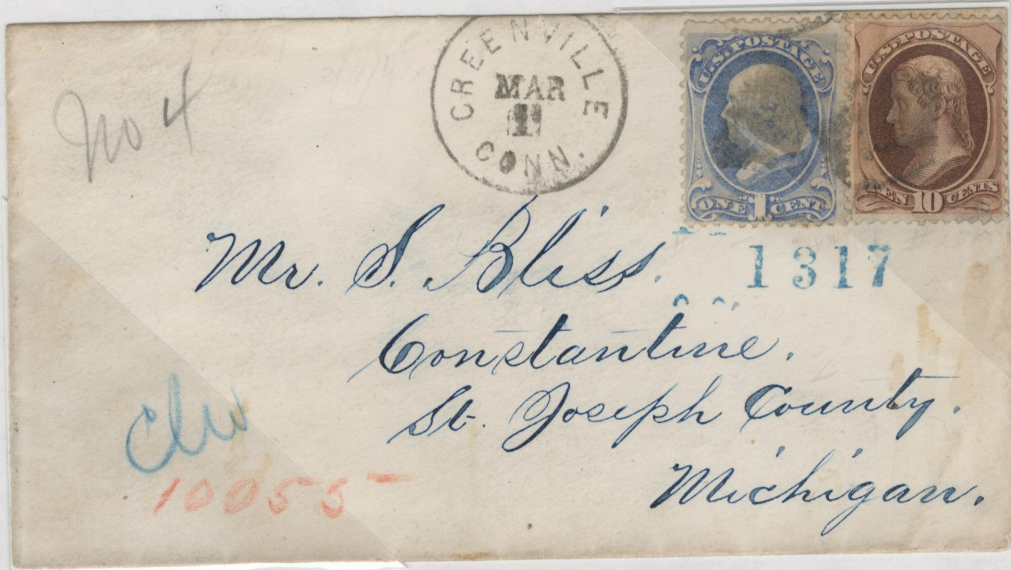 No 4
GREENVILLE
MAR
1
CONN.
U.S. POSTAGE
ONE 1 CENT
U.S. POSTAGE
TEN 10 CENTS
1317
Mr. S. Bliss.
Constantine.
St. Joseph County.
Michigan.
10055